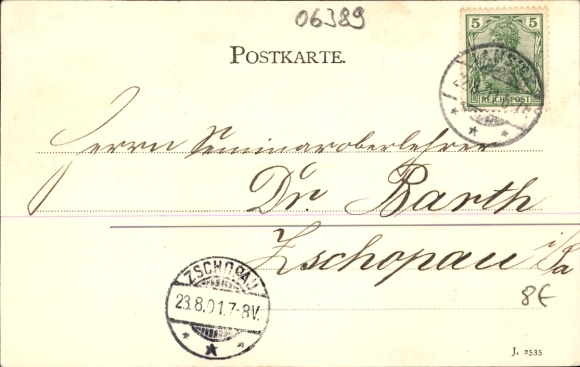 06389
POSTKARTE.
5 5
REICHSPOST
Herrn Seminaroberlehrer
Dr. Barth
Zschopau i/Sa
ZSCHOPAU
23.8.01.7-8V.
8€
J. 2535